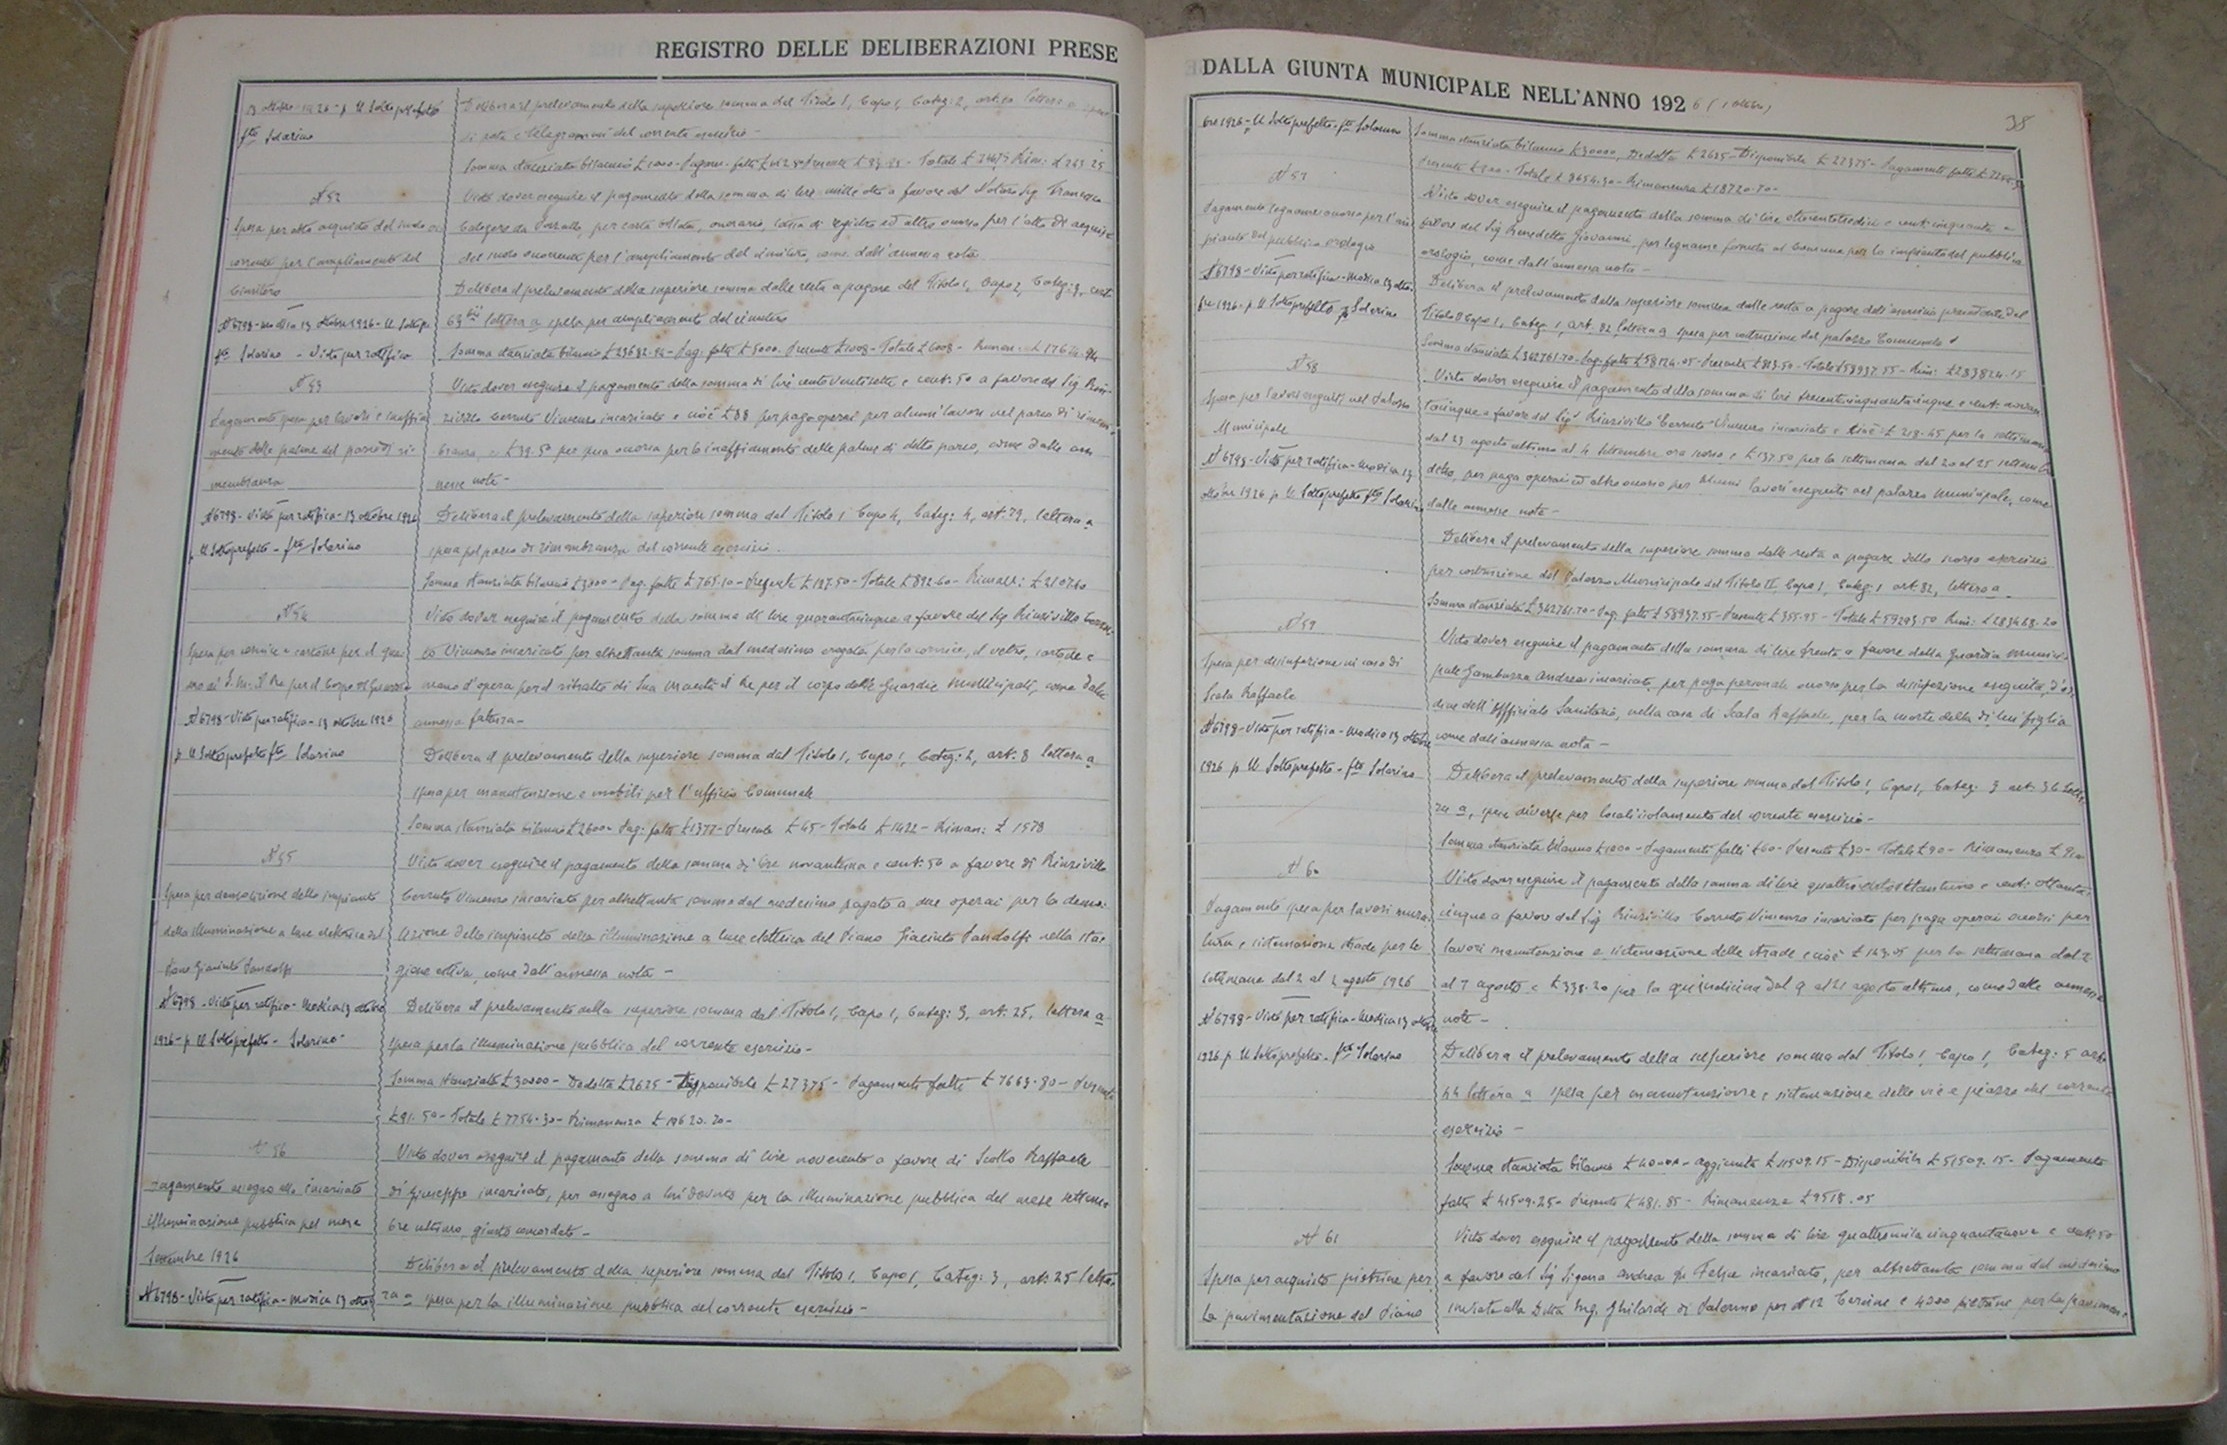 REGISTRO DELLE DELIBERAZIONI PRESE
Delibera il prelevamento della superiore somma dal Titolo 1, Capo 1, Categ: 2, art.
fto Solarino
di posta e telegrammi del corrente esercizio -
N 52
Visto dover eseguire il pagamento della somma di lire mille otto a favore del Notaro Sig. Francesco
Spesa per atto acquisto del suolo
per carta bollata, onorario, tassa di registro ed altro occorso per l'atto di acquisto
corrente per l'ampliamento del
del suolo occorrente per l'ampliamento del cimitero, come dall'annessa nota
Cimitero
Delibera il prelevamento della superiore somma dalle resta a pagare del Titolo 1, Capo 2, Categ: 3,
lettera a spesa per ampliamento del cimitero
fto Solarino - Visto per ratifica
N 53
Visto dover eseguire il pagamento della somma di lire centoventisette e cent: 50 a favore del Sig. Rinzi-
Pagamento spesa per lavori e inaffia
villo Cerruto Vincenzo incaricato e cioè £ 88 per paga operai per alcuni lavori nel parco di rimem-
mento delle palme del parco di ri-
branza, e £ 39.50 per spesa occorsa per lo inaffiamento delle palme di detto parco, come dalle an
membranza
nesse note -
N 6798 - Visto per ratifica - 13 ottobre 1926
Delibera il prelevamento della superiore somma dal Titolo 1 Capo 4, Categ: 4, art. 79, lettera a
p. Il Sottoprefetto - fto Solarino
spesa pel parco di rimembranza del corrente esercizio.
Somma stanziata bilancio £ 3000 - Pag. fatte £ 765.10 - Presente £ 127.50 - Totale £ 892.60 - Riman: £ 2107.40
N 54
Visto dover eseguire il pagamento della somma di lire quarantacinque a favore del Sig Rinzivillo Cerru-
Spesa per cornice e cartone per il qua-
to Vincenzo incaricato per altrettanta somma dal medesimo erogata per la cornice, il vetro, cartone e
dro di S.M. il Re per il Corpo di Guardia
mano d'opera pel ritratto di Sua Maestà il Re per il corpo delle Guardie Municipali, come dalla
N 6798 - Visto per ratifica - 13 ottobre 1926
annessa fattura -
p. Il Sottoprefetto fto Solarino
Delibera il prelevamento della superiore somma dal Titolo 1, Capo 1, Categ: 2, art: 8 lettera a
spesa per manutenzione e mobili per l'ufficio Comunale
Somma stanziata bilancio £ 2600 - Pag: fatte £ 1377 - Presente £ 45 - Totale £ 1422 - Riman: £ 1578
N 55
Visto dover eseguire il pagamento della somma di lire novantuna e cent: 50 a favore di Rinzivillo
Spesa per demolizione dello impianto
Cerruto Vincenzo incaricato per altrettanta somma dal medesimo pagato a due operai per la demo-
della illuminazione a luce elettrica del
lizione dello impianto della illuminazione a luce elettrica del Piano Giacinto Pandolfi nella sta-
Piano Giacinto Pandolfi
gione estiva, come dall'annessa nota -
N 6798 - Visto per ratifica - Modica 13 ottobre
Delibera il prelevamento della superiore somma dal Titolo 1, Capo 1, Categ: 3, art. 25, lettera a
1926 - p. Il Sottoprefetto - Solarino
spesa per la illuminazione pubblica del corrente esercizio -
Somma stanziata £ 30000 - Dedotta £ 2625 - Disponibile £ 27375 - Pagamenti fatti £ 7663.80 - Presente
£ 91.50 - Totale £ 7754.30 - Rimanenza £ 19620.70 -
N 56
Visto dover eseguire il pagamento della somma di lire novecento a favore di Scollo Raffaele
Pagamento assegno allo incaricato
di Giuseppe incaricato, per assegno a lui dovuto per la illuminazione pubblica del mese settem-
illuminazione pubblica pel mese
bre ultimo, giusto concordato -
Settembre 1926
Delibera il prelevamento della superiore somma dal Titolo 1, Capo 1, Categ: 3, art: 25 lette-
N 6798 - Visto per ratifica - Modica 13 otto
ra a spesa per la illuminazione pubblica del corrente esercizio -
DALLA GIUNTA MUNICIPALE NELL'ANNO 1926 (1 ottobre)
38
bre 1926 - p. Il Sottoprefetto - fto Solarino
Somma stanziata bilancio £ 30000, Dedotta £ 2625 - Disponibile £ 27375 - Pagamenti fatti
Presente £ 900 - Totale £ 8654.30 - Rimanenza £ 18720.70 -
N 57
Visto dover eseguire il pagamento della somma di lire ottocentotredici e cent: cinquanta a
Pagamento legname occorso per l'im
favore del Sig Benedetto Giovanni, per legname fornito al Comune per lo impianto del pubblico
pianto del pubblico orologio
orologio, come dall'annessa nota -
N 6798 - Visto per ratifica - Modica 13 otto-
Delibera il prelevamento della superiore somma dalle resta a pagare dell'esercizio precedente del
bre 1926 - p. Il Sottoprefetto fto Solarino
Titolo Capo 1, Categ. 1, art. 82 lettera a spesa per costruzione del palazzo Comunale
Somma stanziata £ 342761.70 - Pag. fatte £ 58124.05 - Presente £ 813.50 - Totale £ 58937.55 - Rim: £ 283824.15
N 58
Visto dover eseguire il pagamento della somma di lire trecentocinquantacinque e cent: novan
Spesa per lavori eseguiti nel Palazzo
tacinque a favore del Sigr Rinzivillo Cerruto Vincenzo incaricato e cioè £ 218.45 per la settimana
Municipale
dal 29 agosto ultimo al 4 Settembre ora scorso e £ 137.50 per la settimana dal 20 al 25 settembre
N 6798 - Visto per ratifica - Modica 13
detto, per paga operai ed altro occorso per alcuni lavori eseguiti nel palazzo municipale, come
ottobre 1926 p. Il Sottoprefetto fto Solarino
dalle annesse note -
Delibera il prelevamento della superiore somma dalle resta a pagare dello scorso esercizio
per costruzione del Palazzo Municipale del Titolo II Capo 1, Categ: 1 art. 82, lettera a.
Somma stanziata £ 342761.70 - Pag. fatte £ 58937.55 - Presente £ 355.95 - Totale £ 59293.50 Rim: £ 283468.20
N 59
Visto dover eseguire il pagamento della somma di lire trenta a favore della Guardia Munici-
Spesa per disinfezione in casa di
pale Gambuzza Andrea incaricato, per paga personale occorso per la disinfezione eseguita, d'or-
Scala Raffaele
dine dell'Ufficiale Sanitario, nella casa di Scala Raffaele, per la morte della di lui figlia
N 6798 - Visto per ratifica - Modica 13 ottobre
come dall'annessa nota -
1926 p. Il Sottoprefetto - fto Solarino
Delibera il prelevamento della superiore somma dal Titolo 1, Capo 1, Categ: 3 art: 36 lette-
ra a, spese diverse per locali isolamento del corrente esercizio -
Somma stanziata bilancio £ 1000 - Pagamenti fatti £ 60 - Presente £ 30 - Totale £ 90 - Rimanenza £ 910
N 60
Visto dover eseguire il pagamento della somma di lire quattrocentottantuno e cent: ottanta-
Pagamento spesa per lavori manu-
cinque a favore del Sig Rinzivillo Cerruto Vincenzo incaricato per paga operai occorsi per
lavori manutenzione e sistemazione delle strade e cioè £ 143.65 per la settimana dal 2
settimane dal 2 al 2 agosto 1926
al 7 agosto e £ 338.20 per la quindicina dal 9 al 21 agosto ultimo, come dalle annesse
N 6798 - Visto per ratifica - Modica 13 ottobre
note -
1926 p. Il Sottoprefetto - fto Solarino
Delibera il prelevamento della superiore somma dal Titolo 1 Capo 1, Categ: 5 art:
44 lettera a spesa per manutenzione e sistemazione delle vie e piazze del corrente
esercizio -
Somma stanziata bilancio £ 40000 - aggiunta £ 11509.15 - Disponibile £ 51509.15 - Pagamento
fatti £ 41509.25 - Presente £ 481.85 - Rimanenza £ 9518.05
N 61
Visto dover eseguire il pagamento della somma di lire quattromilacinquantanove e cent: 50
Spesa per acquisto pietrine per
a favore del Sig Sigona Andrea fu Felice incaricato, per altrettanta somma dal medesimo
la pavimentazione del Piano
inviata alla Ditta Ing. Ghilardi di Palermo per N 12 e 4000 pietrine per la pavimen-